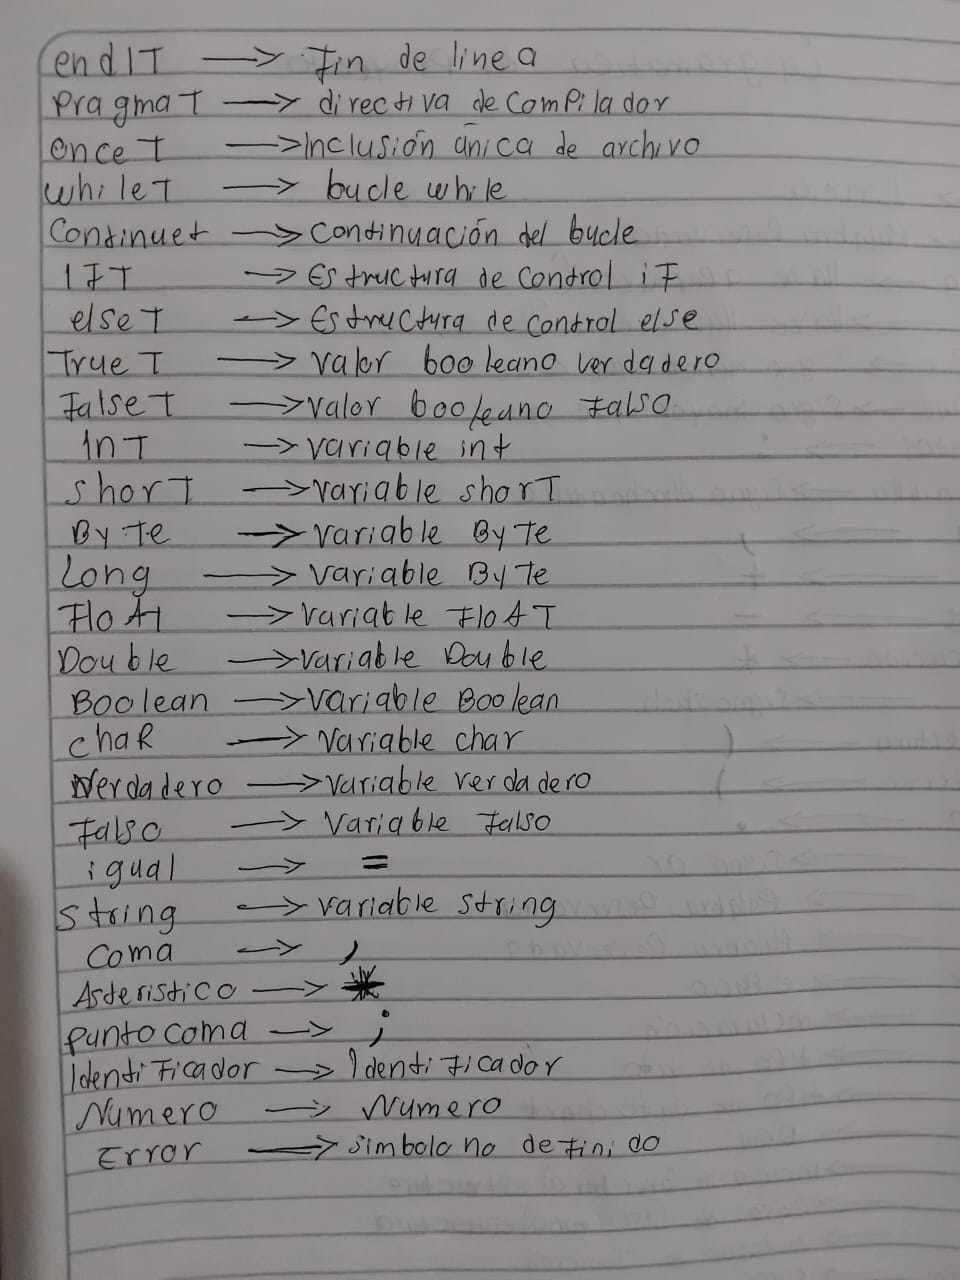 endIT → Fin de linea
PragmaT → directiva de ComPilador
onceT → Inclusión única de archivo
whileT → bucle while
Continuet → Continuación del bucle
IFT → Estructura de Control iF
elseT → Estructura de Control else
TrueT → Valor booleano verdadero
FalseT → Valor booleano Falso
InT → Variable int
ShorT → Variable shorT
ByTe → Variable ByTe
Long → Variable ByTe
FloAt → Variable FloAT
Double → Variable Double
Boolean → Variable Boolean
chaR → Variable char
Verdadero → Variable verdadero
Falso → Variable Falso
igual → =
String → Variable String
Coma → ,
Asteristico → *
Punto coma → ;
IdentiFicador → IdentiFicador
Numero → Numero
Error → simbolo no deFinido